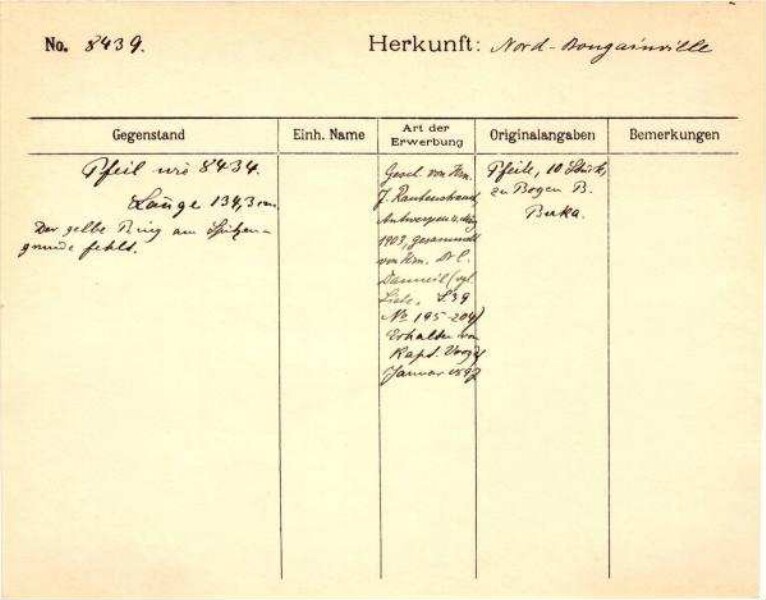 No. 8439. Herkunft: Nord-Bougainville
Gegenstand
Einh. Name
Art der
Erwerbung
Originalangaben
Bemerkungen
Pfeil wie 8434.
Länge 134,3 cm.
Der gelbe Ring am Spitzen-
grunde fehlt.
Gesch. von Hrn.
J. Rautenstrauch,
Antwerpen
1903, gesammelt
von Hrn. Dr C.
Danneil (vgl.
Liste, S 39
No 195-204)
Erhalten von
Kapt. Voogdt
Januar 1897
Pfeile, 10 Stück,
zu Bogen B.
Buka.